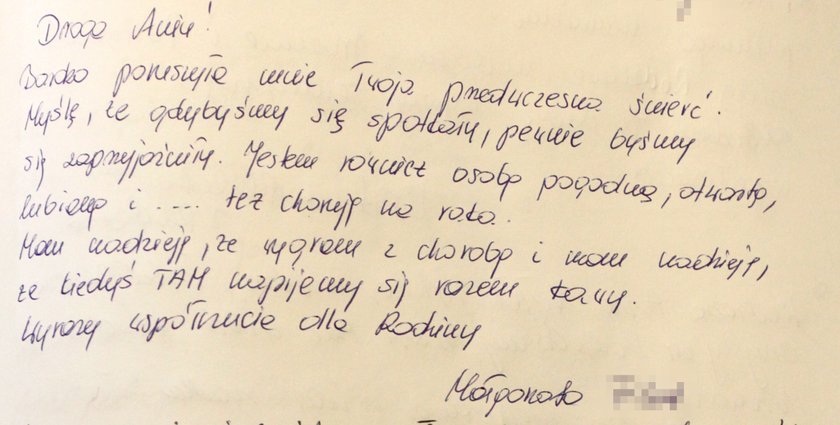 Droga Aniu!
Bardzo poruszyła mnie Twoja przedwczesna śmierć.
Myślę, że gdybyśmy się spotkały, pewnie byśmy
się zaprzyjaźniły. Jestem również osobą pogodną, otwartą,
lubianą i .... też choruję na raka.
Mam nadzieję, że wygram z chorobą i mam nadzieję,
że kiedyś TAM napijemy się razem kawy.
Wyrazy współczucia dla Rodziny
Małgorzata